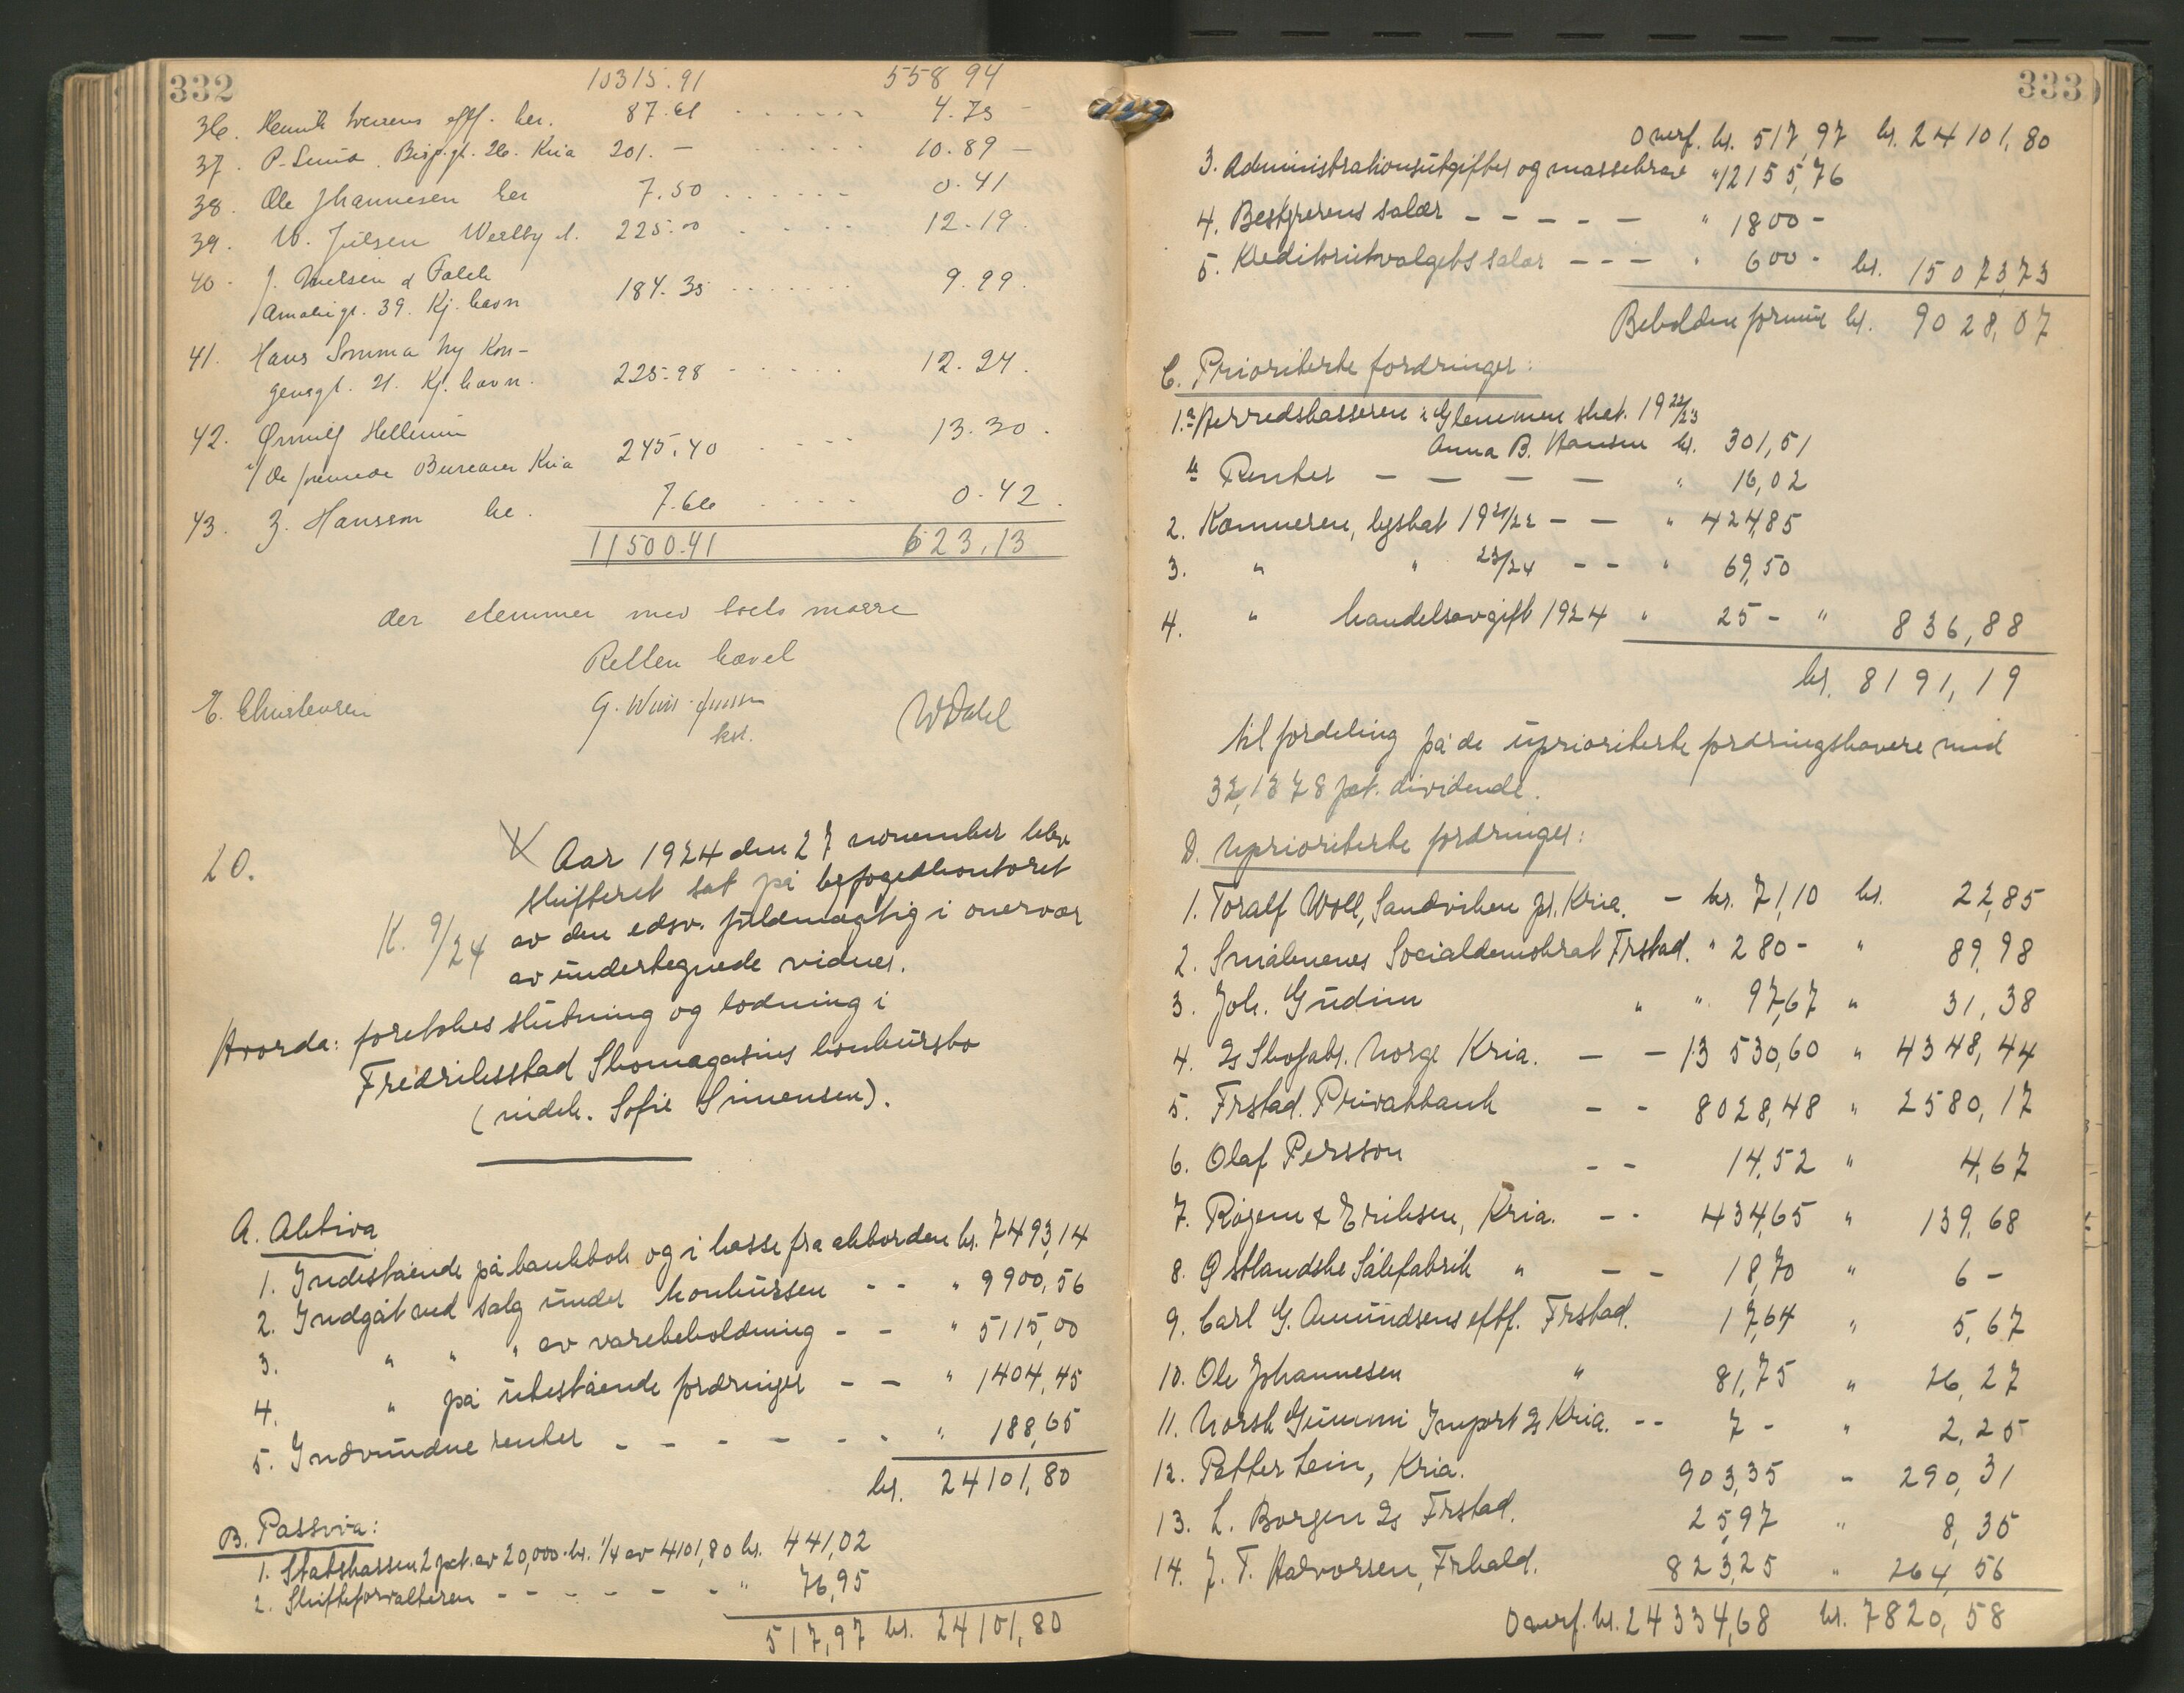 332
10315.91 558 94
36. Henrik eftf. her. 87.61 4.75 -
37. P. Lund. Bisp.gt. 26. Kria 201. - 10.89 -
38. Ole Johannesen her 7.50 0.41
39. W. Julsen Vestby st. 225.00 12.19.
40. J. Nielsen & Falck
Amaliegt. 39. Kj.havn 184.35 9.99.
41. Hans Somma Ny Kon-
gensgt. 21. Kj.havn. 225.98 12.24.
42. Ørnulf
v/ De forenede Bureauer Kria 245.40 13.30.
43. Z. Hansson he. 7.66 0.42.
11500.41 623.13
der stemmer med boets masse
Retten hævet
E. Christensen
kst. WDahl
20. Aar 1924 den 27 november blev
skifteret sat på byfogedkontoret
K. 9/24 av den edsv. fuldmægtig i overvær
av undertegnede vidner.
Hvorda: foretokes slutning og lodning i
Fredriksstad Skomagasins konkursbo
(indeh. Sofie Simensen).
A. Aktiva
1. Indestående på bankbok og i kasse fra akkorden kr. 7493,14
2. Indgåt ved salg under konkursen - - " 9900,56
3. " " " av varebeholdning - - " 5115,00
4. " på utestående fordringer - - " 1404,45
5. Indvundne renter - - - - - - " 188,65
kr. 24101,80
B. Passiva:
1. Statskassen 2 pct. av 20,000 kr. 1/4 av 4101,80 kr. 441,02
2. Skifteforvalteren - - - - - - " 76,95
517,97 kr. 24101,80
333
Overf. kr. 517,97 kr. 24101,80
3. Administrationsutgifter og massekrav " 12155,76
4. Bestyrerens salær - - - - - " 1800 -
5. Kreditorutvalgets salær - - - " 600 - kr. 15073,73
Beholden formue kr. 9028,07
C. Prioriterte fordringer:
1. a Herredskasseren i Glemmen skat. 19 22/23
Anna B. Hansen kr. 301,51
b Renter - - - - " 16,02
2. Kæmneren, byskat 19 21/22 - - " 424,85
3. " " 23/24 - - " 69,50
4. " handelsavgift 1924 " 25 - " 836,88
kr. 8191,19
til fordeling på de uprioriterte fordringshavere med
32,1378 pct. dividende.
D. Uprioriterte fordringer:
1. Toralf Woll, Sandviken pr. Kria. - kr. 71,10 kr. 22,85
2. Smålenenes Socialdemokrat Frstad. " 280 - " 89,98
3. Joh. Gudim " " 97,67 " 31,38
4. As Skofabr. Norge Kria. - - 13 530,60 " 4348,44
5. Frstad. Privatbank - - 8028,48 " 2580,17
6. Olaf Persson - - 14,52 " 4,67
7. Røgem & Eriksen, Kria. - - 434,65 " 139,68
8. Østlandske Sålefabrik " - - 18,70 " 6 -
9. Carl G. Amundsens eftf. Frstad. 17,64 " 5,67
10. Ole Johannesen " 81,75 " 26,27
11. Norsk Gummi Import As Kria. - - 7 - " 2,25
12. Petter Lein, Kria. 903,35 - 290,31
13. L. Borgen As Frstad. 25,97 " 8,35
14. J. T. Halvorsen, Frhald. 823,25 " 264,56
Overf. kr. 24334,68 kr. 7820,58